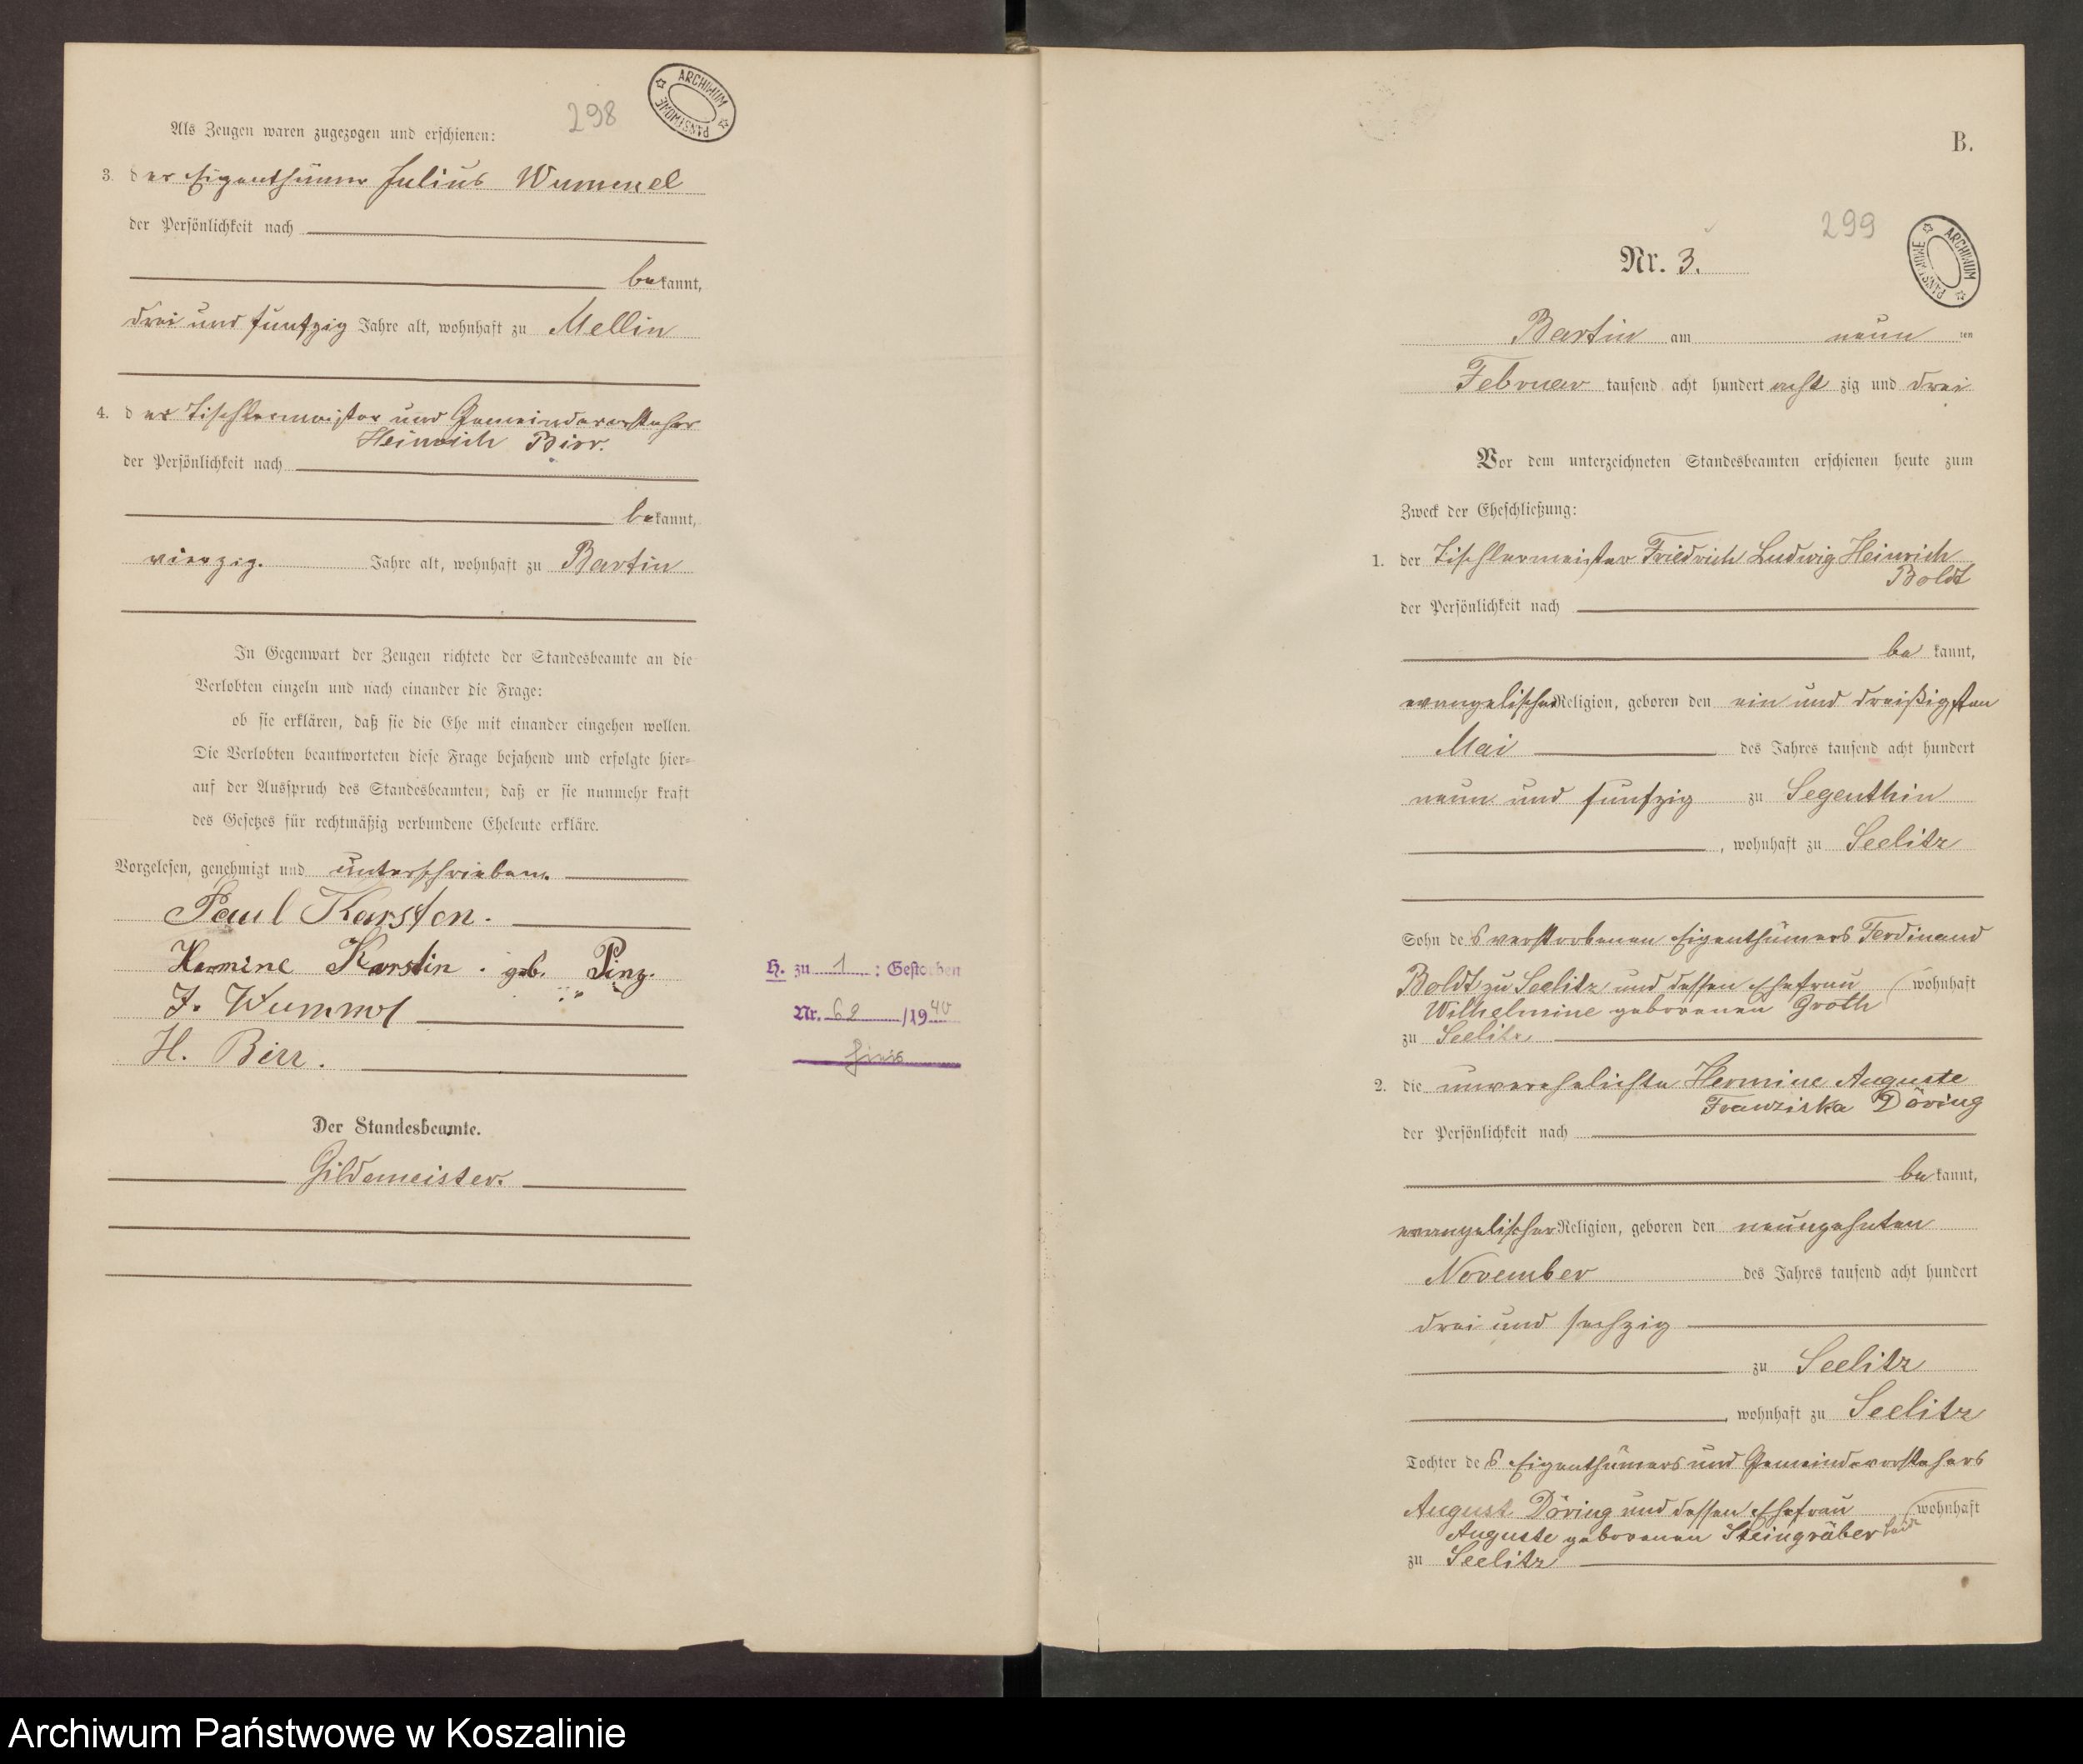 298
ARCHIWUM PAŃSTWOWE
Als Zeugen waren zugezogen und erschienen:
3. der Eigenthümer Julius Wummel
der Persönlichkeit nach
bekannt,
drei und funfzig Jahre alt, wohnhaft zu Mellin
4. der Tischlermeister und Gemeindevorsteher
Heinrich Birr.
der Persönlichkeit nach
bekannt,
vierzig. Jahre alt, wohnhaft zu Bartin
In Gegenwart der Zeugen richtete der Standesbeamte an die
Verlobten einzeln und nach einander die Frage:
ob sie erklären, daß sie die Ehe mit einander eingehen wollen.
Die Verlobten beantworteten diese Frage bejahend und erfolgte hier-
auf der Ausspruch des Standesbeamten, daß er sie nunmehr kraft
des Gesetzes für rechtmäßig verbundene Eheleute erkläre.
Vorgelesen, genehmigt und unterschrieben.
Paul Karsten.
Hermine Karstin. geb. Pinz.
J. Wummel
H. Birr.
Der Standesbeamte.
Gildemeister.
H. zu 1 : Gestorben
Nr. 62 /1940
B.
299
ARCHIWUM PAŃSTWOWE
Nr. 3.
Bartin am neun ten
Februar tausend acht hundert acht zig und drei
Vor dem unterzeichneten Standesbeamten erschienen heute zum
Zweck der Eheschließung:
1. der Tischlermeister Friedrich Ludwig Heinrich
Boldt
der Persönlichkeit nach
be kannt,
evangelischer Religion, geboren den ein und dreißigsten
Mai des Jahres tausend acht hundert
neun und funfzig zu Segenthin
, wohnhaft zu Seelitz
Sohn des verstorbenen Eigenthümers Ferdinand
Boldt zu Seelitz und dessen Ehefrau wohnhaft
Wilhelmine geborenen Groth
zu Seelitz
2. die unverehelichte Hermine Auguste
Franziska Döring
der Persönlichkeit nach
be kannt,
evangelischer Religion, geboren den neunzehnten
November des Jahres tausend acht hundert
drei und sechzig
zu Seelitz
, wohnhaft zu Seelitz
Tochter des Eigenthümers und Gemeindevorstehers
August Döring und dessen Ehefrau wohnhaft
Auguste geborenen Steingräber
zu Seelitz
Archiwum Państwowe w Koszalinie